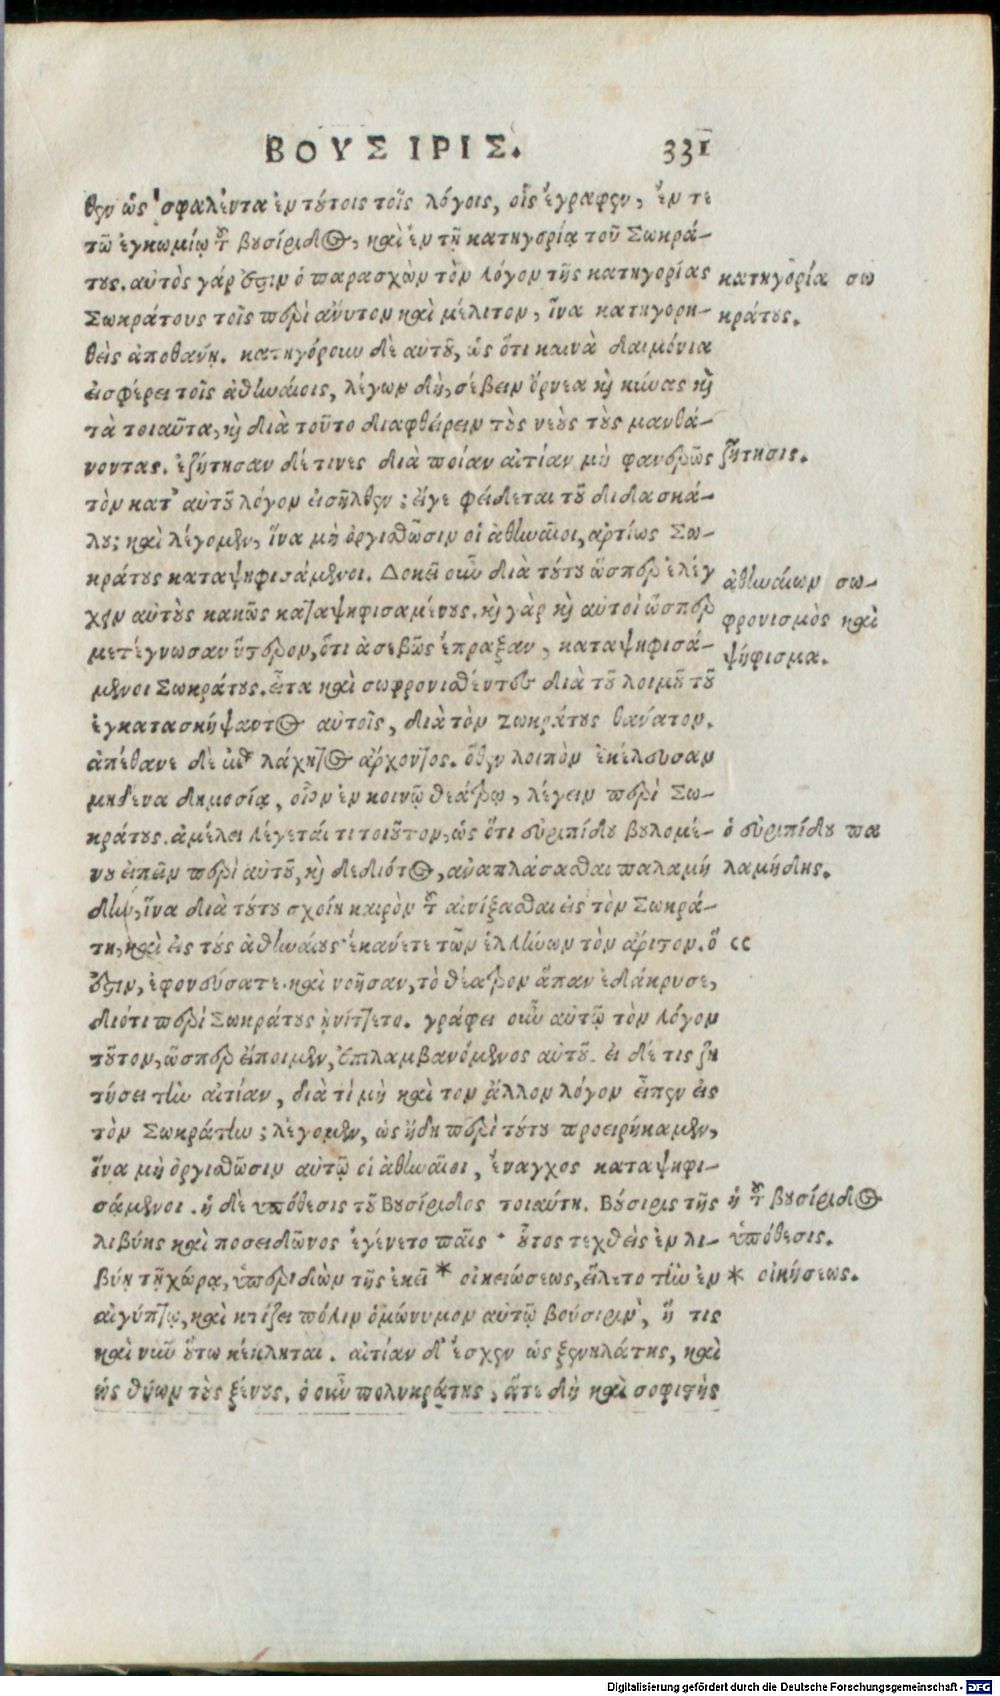 ΒΟΥΣΙΡΙΣ. 331
θεν ὡς σφαλέντα ἐν τούτοις τοῖς λόγοις, οἷς ἔγραφεν, ἔν τε
τῷ ἐγκωμίῳ τοῦ βουσίριδος, καὶ ἐν τῇ κατηγορίᾳ τοῦ Σωκρά-
τους. αὐτὸς γάρ ἐστιν ὁ παρασχὼν τὸν λόγον τῆς κατηγορίας
κατηγορία σω
Σωκράτους τοῖς περὶ ἄνυτον καὶ μέλιτον, ἵνα κατηγορη-
κράτους.
θεὶς ἀποθάνῃ. κατηγόρουν δὲ αὐτοῦ, ὡς ὅτι καινὰ δαιμόνια
εἰσφέρει τοῖς ἀθηναίοις, λέγων δὴ, σέβειν ὄρνεα καὶ κύνας καὶ
τὰ τοιαῦτα, καὶ διὰ τοῦτο διαφθείρειν τοὺς νέους τοὺς μανθά-
νοντας. ἐζήτησαν δέ τινες διὰ ποίαν αἰτίαν μὴ φανερῶς
ζήτησις.
τὸν κατ' αὐτοῦ λόγον εἰσῆλθεν; εἴγε φείδεται τοῦ διδασκά-
λου; καὶ λέγομεν, ἵνα μὴ ὀργισθῶσιν οἱ ἀθηναῖοι, ἀρτίως Σω-
κράτους καταψηφισάμενοι. Δοκεῖ οὖν διὰ τούτου ὥσπερ ἐλέγ
ἀθηναίων σω-
χειν αὐτοὺς κακῶς καταψηφισαμένους. καὶ γὰρ καὶ αὐτοὶ ὥσπερ
φρονισμὸς καὶ
μετέγνωσαν ὕστερον, ὅτι ἀσεβῶς ἔπραξαν, καταψηφισά-
ψήφισμα.
μενοι Σωκράτους. εἶτα καὶ σωφρονισθέντες διὰ τοῦ λοιμοῦ τοῦ
ἐγκατασκήψαντος αὐτοῖς, διὰ τὸν Σωκράτους θάνατον.
ἀπέθανε δὲ ἐπὶ λάχητος ἄρχοντος. ὅθεν λοιπὸν ἐκέλευσαν
μηδένα δημοσίᾳ, οἷον ἐν κοινῷ θεάτρῳ, λέγειν περὶ Σω-
κράτους. ἀμέλει λέγεταί τι τοιοῦτον, ὡς ὅτι εὐριπίδου βουλομέ-
ὁ εὐριπίδου πα
νου εἰπεῖν περὶ αὐτοῦ, καὶ δεδιότος, ἀναπλάσασθαι παλαμή
λαμήδης.
δην, ἵνα διὰ τούτου σχοίη καιρὸν τοῦ αἰνίξασθαι εἰς τὸν Σωκρά-
τη, καὶ εἰς τούς ἀθηναίους· ἐκάνετε τῶν ἑλλήνων τὸν ἄριστον. ὅ
cc
ἐστιν, ἐφονεύσατε. καὶ νοῆσαν, τὸ θέατρον ἅπαν ἐδάκρυσε,
διότι περὶ Σωκράτους ᾐνίττετο. γράφει οὖν αὐτῷ τὸν λόγον
τοῦτον, ὥσπερ εἴποιμεν, ἐπιλαμβανόμενος αὐτοῦ. εἰ δέ τις ζη
τήσει τὴν αἰτίαν, διὰ τί μὴ καὶ τον ἄλλον λόγον εἶπεν εἰς
τὸν Σωκράτην; λέγομεν, ὡς ἤδη περὶ τούτου προειρήκαμεν,
ἵνα μὴ ὀργισθῶσιν αὐτῷ οἱ ἀθηναῖοι, ἔναγχος καταψηφι-
σάμενοι. ἡ δὲ ὑπόθεσις τοῦ Βουσίριδος τοιαύτη. Βούσιρις τῆς
ἡ τοῦ βουσίριδος
λιβύης καὶ ποσειδῶνος ἐγένετο παῖς· οὗτος τεχθεὶς ἐν λι-
ὑπόθεσις.
βύῃ τῇ χώρᾳ, ὑπεριδὼν τῆς ἐκεῖ * οἰκειώσεως, εἵλετο τὴν ἐν
* οἰκήσεως.
αἰγύπτῳ, καὶ κτίζει πόλιν ὁμώνυμον αὐτῷ βούσιριν, ἥ τις
καὶ νῦν οὕτω κέκληται. αἰτίαν δ' ἔσχεν ὡς ξενηλάτης, καὶ
ὡς θύων τοὺς ξένους. ὁ οὖν πολυκράτης, ἅτε δὴ καὶ σοφιστὴς
Digitalisierung gefördert durch die Deutsche Forschungsgemeinschaft - DFG